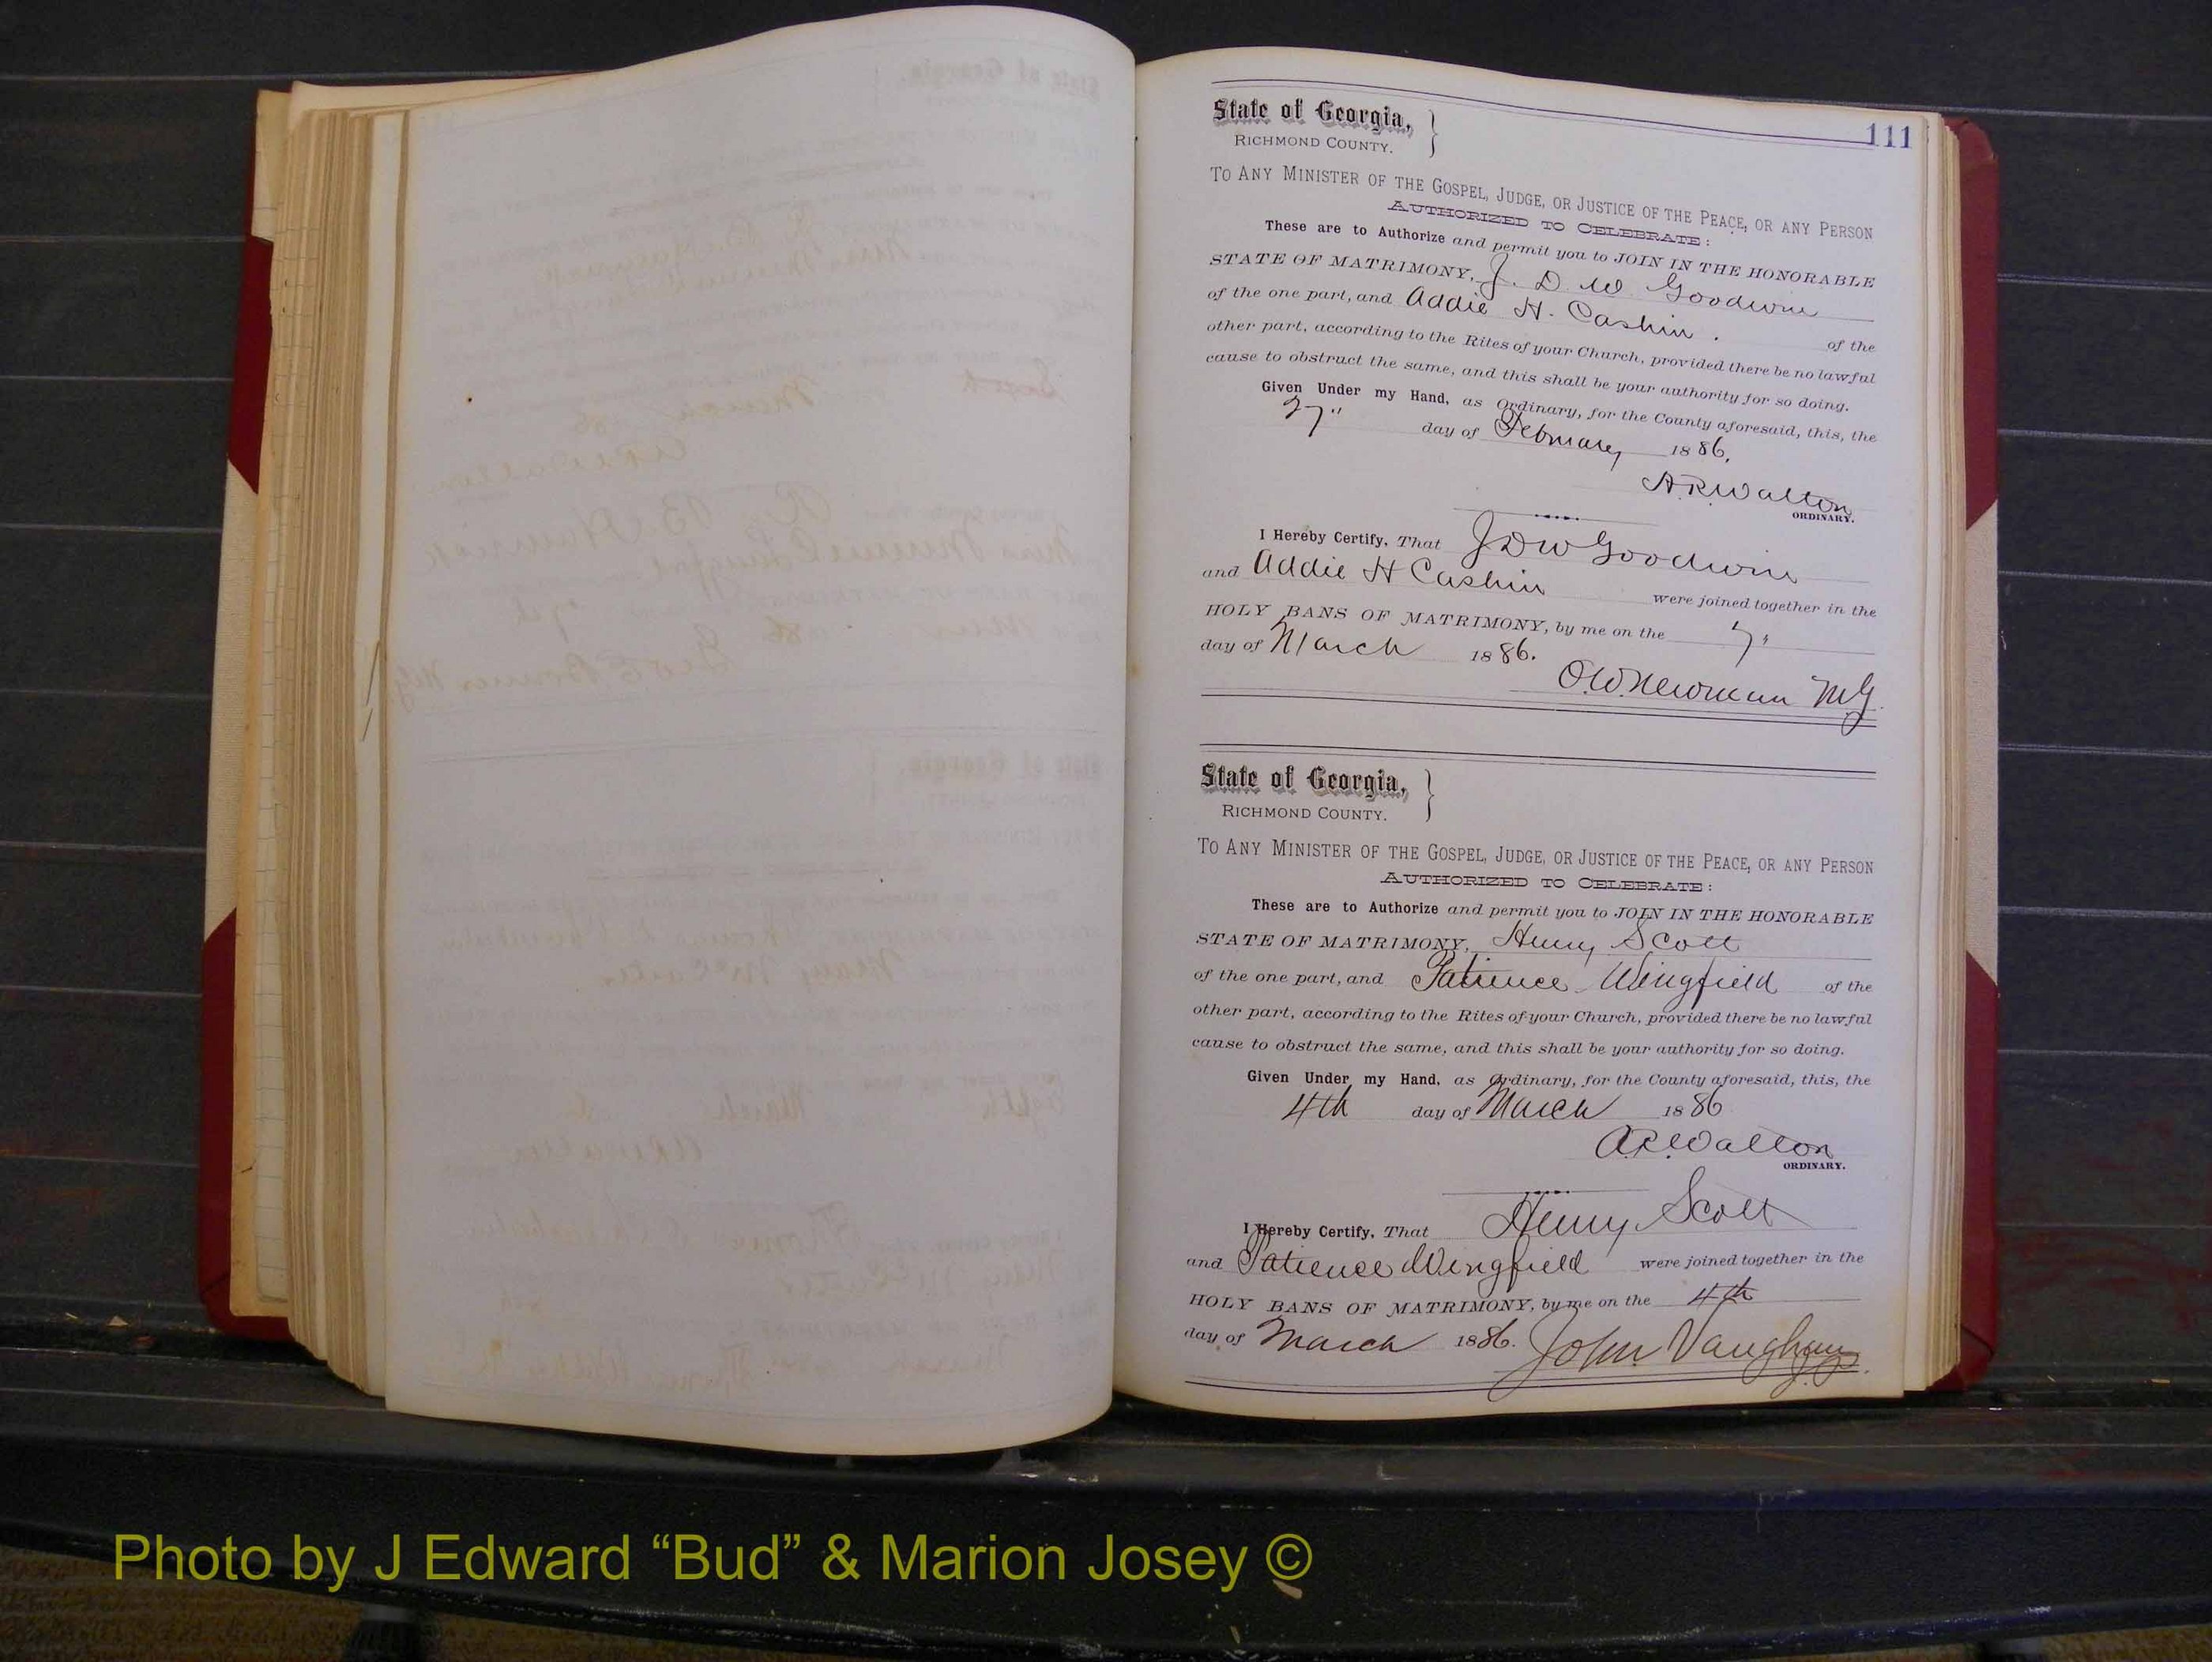 111
State of Georgia,
RICHMOND COUNTY.
TO ANY MINISTER OF THE GOSPEL, JUDGE, OR JUSTICE OF THE PEACE, OR ANY PERSON
AUTHORIZED TO CELEBRATE:
These are to Authorize and permit you to JOIN IN THE HONORABLE
STATE OF MATRIMONY, J. D. W. Goodwin
of the one part, and Addie H. Cashin. of the
other part, according to the Rites of your Church, provided there be no lawful
cause to obstruct the same, and this shall be your authority for so doing.
Given Under my Hand, as Ordinary, for the County aforesaid, this, the
27" day of February 1886.
A.R. Walton
ORDINARY.
I Hereby Certify, That J D W Goodwin
and Addie H Cashin were joined together in the
HOLY BANS OF MATRIMONY, by me on the 7"
day of March 1886.
O.W. Newman MG
State of Georgia,
RICHMOND COUNTY.
TO ANY MINISTER OF THE GOSPEL, JUDGE, OR JUSTICE OF THE PEACE, OR ANY PERSON
AUTHORIZED TO CELEBRATE:
These are to Authorize and permit you to JOIN IN THE HONORABLE
STATE OF MATRIMONY, Henry Scott
of the one part, and Patience Wingfield of the
other part, according to the Rites of your Church, provided there be no lawful
cause to obstruct the same, and this shall be your authority for so doing.
Given Under my Hand, as Ordinary, for the County aforesaid, this, the
4th day of March 1886
A.R. Walton
ORDINARY.
I Hereby Certify, That Henry Scott
and Patience Wingfield were joined together in the
HOLY BANS OF MATRIMONY, by me on the 4th
day of March 1886. John Vaughan
Photo by J Edward “Bud” & Marion Josey ©